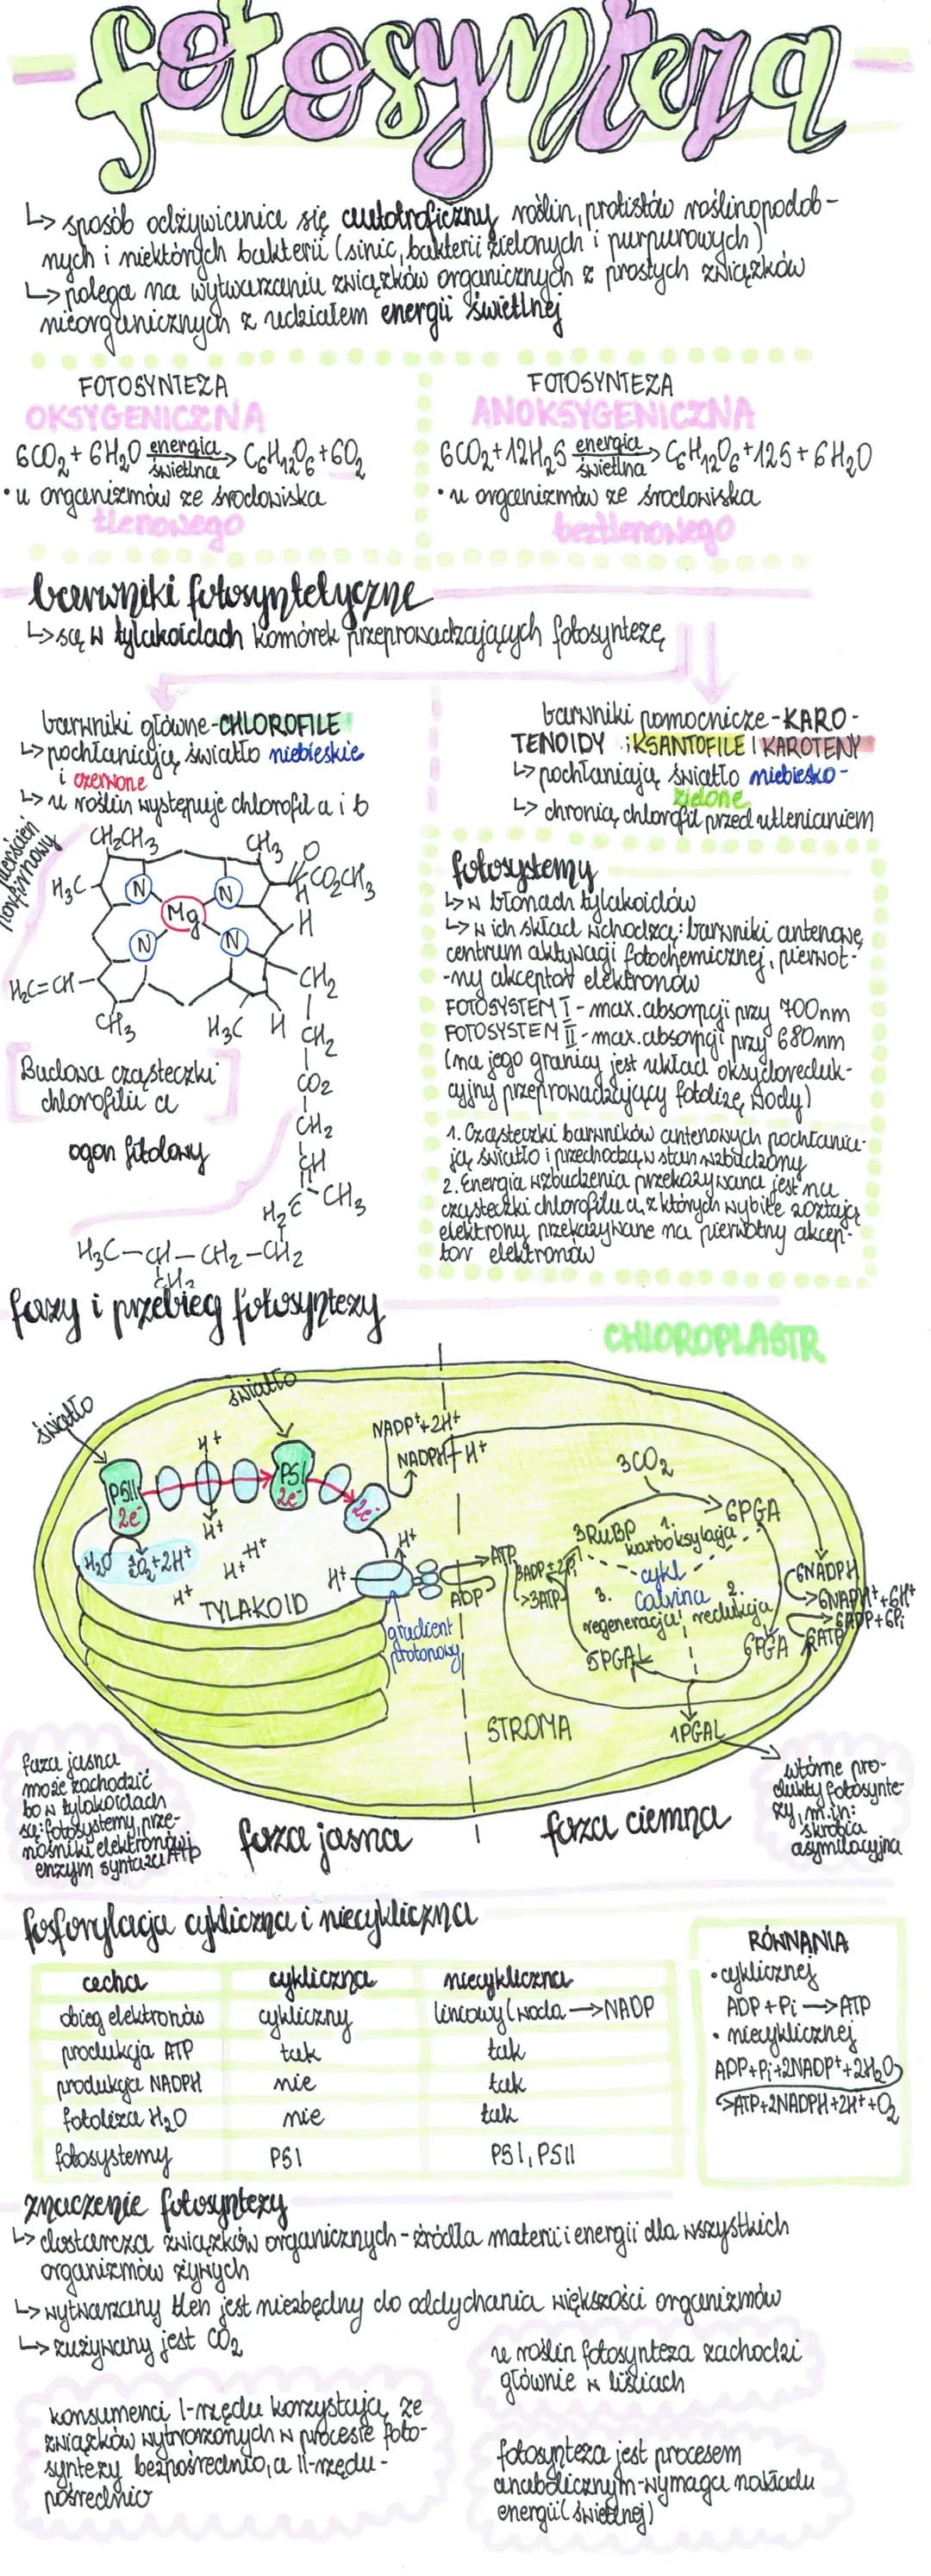 fotosynteza
↳ sposób odżywiania się autotroficzny roślin, protistów roślinopodob-
nych i niektórych bakterii (sinic, bakterii zielonych i purpurowych)
↳ polega na wytwarzaniu związków organicznych z prostych związków
nieorganicznych z udziałem energii świetlnej
FOTOSYNTEZA
OKSYGENICZNA
6CO₂ + 6H₂O energia świetlna → C₆H₁₂O₆ + 6O₂
• u organizmów ze środowiska
tlenowego
FOTOSYNTEZA
ANOKSYGENICZNA
6CO₂ + 12H₂S energia świetlna → C₆H₁₂O₆ + 12S + 6H₂O
• u organizmów ze środowiska
beztlenowego
barwniki fotosyntetyczne
↳ są w tylakoidach komórek przeprowadzających fotosyntezę
barwniki główne - CHLOROFILE
↳ pochłaniają światło niebieskie
i czerwone
↳ u roślin występuje chlorofil a i b
barwniki pomocnicze - KARO-
TENOIDY : KSANTOFILE I KAROTENY
↳ pochłaniają światło niebiesko-
zielone
↳ chronią chlorofil przed utlenianiem
pierścień
porfirynowy
CH₂CH₃
CH₃
O
H₃C
N
N
CO₂CH₃
H
Mg
H
N
N
H₂C=CH
CH₂
CH₃
H₃C
H
CH₂
CO₂
CH₂
CH
C
CH₃
H₂C
H₃C-CH-CH₂-CH₂
CH₂
Budowa cząsteczki
chlorofilu a
ogon fitolowy
fotosystemy
↳ w błonach tylakoidów
↳ w ich skład wchodzą: barwniki antenowe,
centrum aktywacji fotochemicznej, pierwot-
-ny akceptor elektronów
FOTOSYSTEM I - max. absorpcji przy 700nm
FOTOSYSTEM II - max. absorpcji przy 680nm
(na jego granicy jest układ oksydoreduk-
cyjny przeprowadzający fotolizę wody)
1. Cząsteczki barwników antenowych pochłania-
ją światło i przechodzą w stan wzbudzony
2. Energia wzbudzenia przekazywana jest na
cząsteczki chlorofilu a, z których wybite zostają
elektrony przekazywane na pierwotny akcep-
tor elektronów
fazy i przebieg fotosyntezy
CHLOROPLASTR
światło
światło
H⁺
NADP⁺+2H⁺
NADPH + H⁺
PSII
2e⁻
PSI
2e⁻
2e⁻
H⁺
H₂O
½O₂+2H⁺
H⁺
H⁺
H⁺
TYLAKOID
H⁺
H⁺
gradient
protonowy
ATP
ADP
3ADP+2Pi
3ATP
3CO₂
6PGA
3RuBP
1.
karboksylacja
cykl
Calvina
3.
regeneracja
2.
redukcja
5PGAL
6PGA
6NADPH
6NADP⁺+6H⁺
6ADP+6Pi
6ATP
STROMA
1PGAL
faza jasna
może zachodzić
bo w tylakoidach
są: fotosystemy, prze-
nośniki elektronów i
enzym syntaza ATP
faza jasna
faza ciemna
wtórne pro-
dukty fotosynte-
zy, m.in:
skrobia
asymilacyjna
fosforylacja cykliczna i niecykliczna
cecha cykliczna niecykliczna
obieg elektronów cykliczny liniowy (woda → NADP
produkcja ATP tak tak
produkcja NADPH nie tak
fotoliza H₂O nie tak
fotosystemy PSI PSI, PSII
RÓWNANIA
• cyklicznej
ADP + Pi → ATP
• niecyklicznej
ADP+Pi+2NADP⁺+2H₂O
→ATP+2NADPH+2H⁺+O₂
znaczenie fotosyntezy
↳ dostarcza związków organicznych - źródła materii i energii dla wszystkich
organizmów żywych
↳ wytwarzany tlen jest niezbędny do oddychania większości organizmów
↳ zużywany jest CO₂
u roślin fotosynteza zachodzi
głównie w liściach
konsumenci I-rzędu korzystają ze
związków wytworzonych w procesie foto-
syntezy bezpośrednio, a II-rzędu-
pośrednio
fotosynteza jest procesem
anabolicznym - wymaga nakładu
energii (świetlnej)